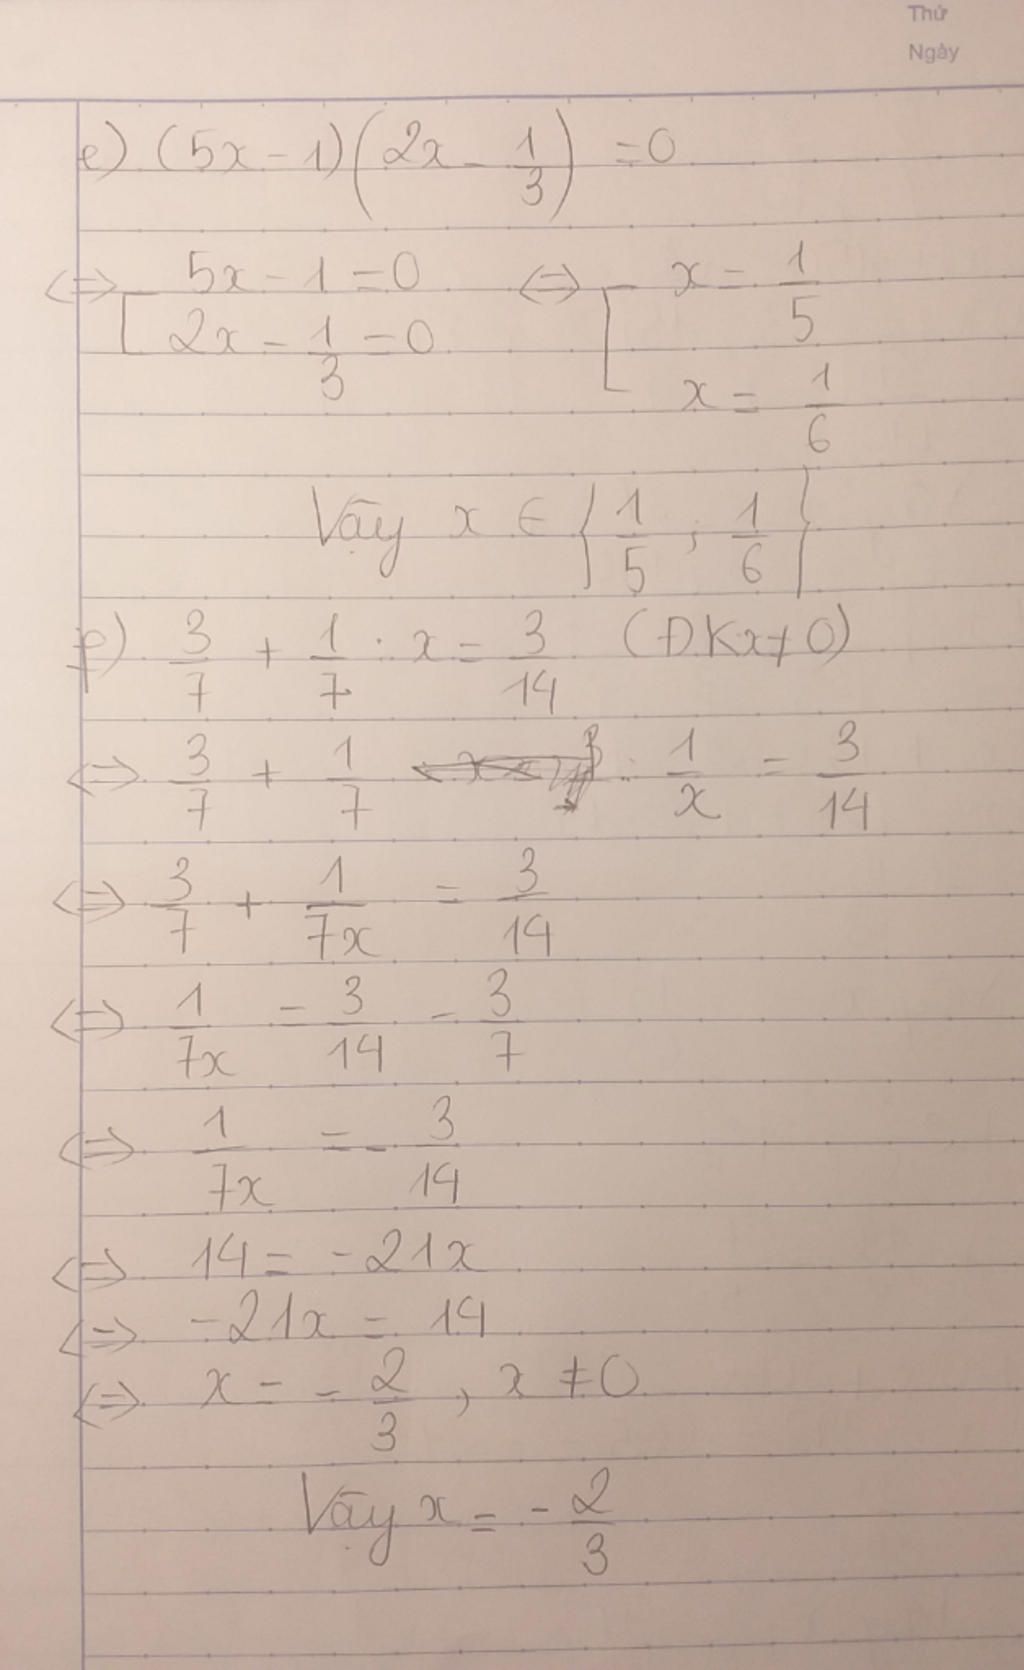 Thứ
Ngày
e) (5x - 1)(2x - 1/3) = 0
<=> [ 5x - 1 = 0 <=> [ x = 1/5
2x - 1/3 = 0
x = 1/6
Vậy x ∈ { 1/5 ; 1/6 }
f) 3/7 + 1/7 : x = 3/14 (ĐK x ≠ 0)
<=> 3/7 + 1/7 . 1/x = 3/14
<=> 3/7 + 1/7x = 3/14
<=> 1/7x = 3/14 - 3/7
<=> 1/7x = - 3/14
<=> 14 = -21x
<=> -21x = 14
<=> x = - 2/3 , x ≠ 0
Vậy x = - 2/3